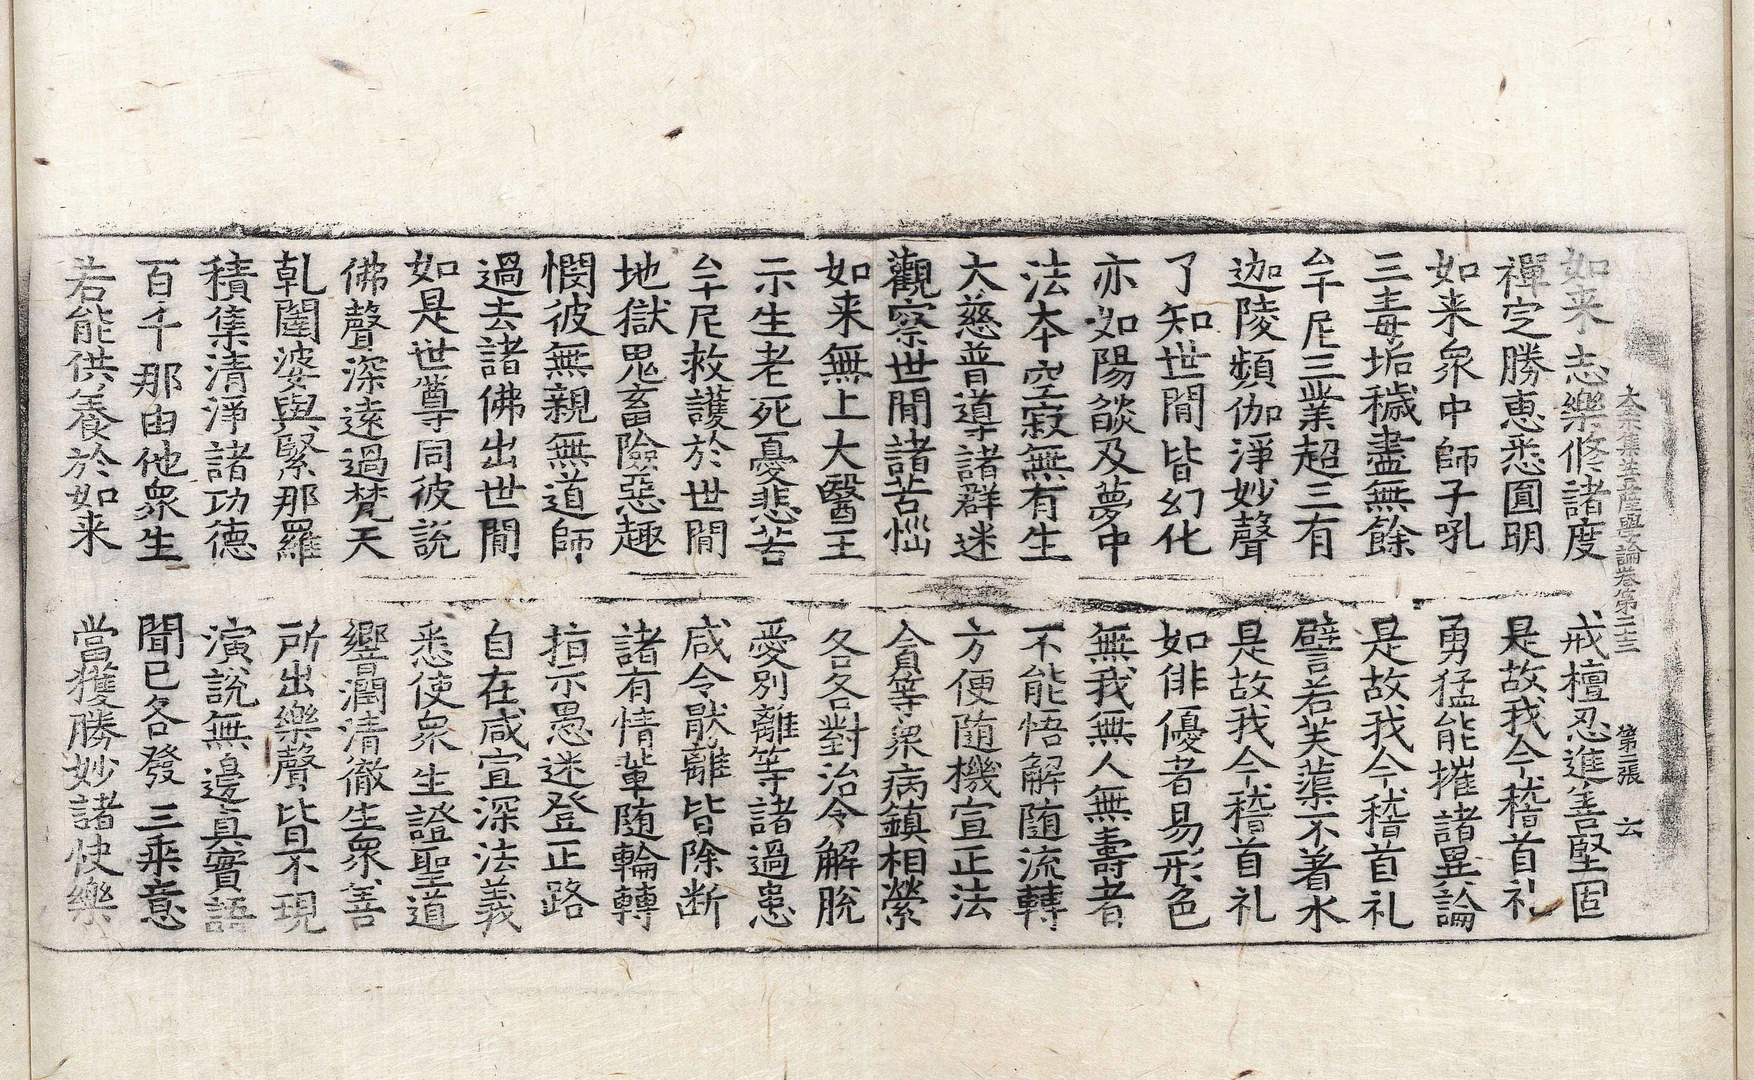 大乘集菩薩學論卷第二十三 第二張 云
如来志樂修諸度 戒檀忍進善堅固
禪定勝恵悉圓明 是故我今稽首礼
如来衆中師子吼 勇猛能摧諸異論
三毒垢穢盡無餘 是故我今稽首礼
牟尼三業超三有 譬若芙蕖不著水
迦陵頻伽淨妙聲 是故我今稽首礼
了知世閒皆幻化 如俳優者易形色
亦如陽燄及夢中 無我無人無壽者
法本空寂無有生 不能悟解随流轉
大慈普導諸群迷 方便随機宣正法
觀察世閒諸苦惱 貪等衆病鎮相縈
如来無上大醫王 各各對治令解脫
示生老死憂悲苦 愛別離等諸過患
牟尼救護於世閒 咸令猒離皆除断
地獄鬼畜險惡趣 諸有情軰随輪轉
憫彼無親無道師 指示愚迷登正路
過去諸佛出世閒 自在咸宣深法義
如是世尊同彼說 悉使衆生證聖道
佛聲深遠過梵天 響潤清徹生衆善
乹闥婆與緊那羅 所出樂聲皆不現
積集清淨諸功德 演說無邊真實語
百千那由他衆生 聞已各發三乘意
若能供養於如来 當獲勝妙諸快樂